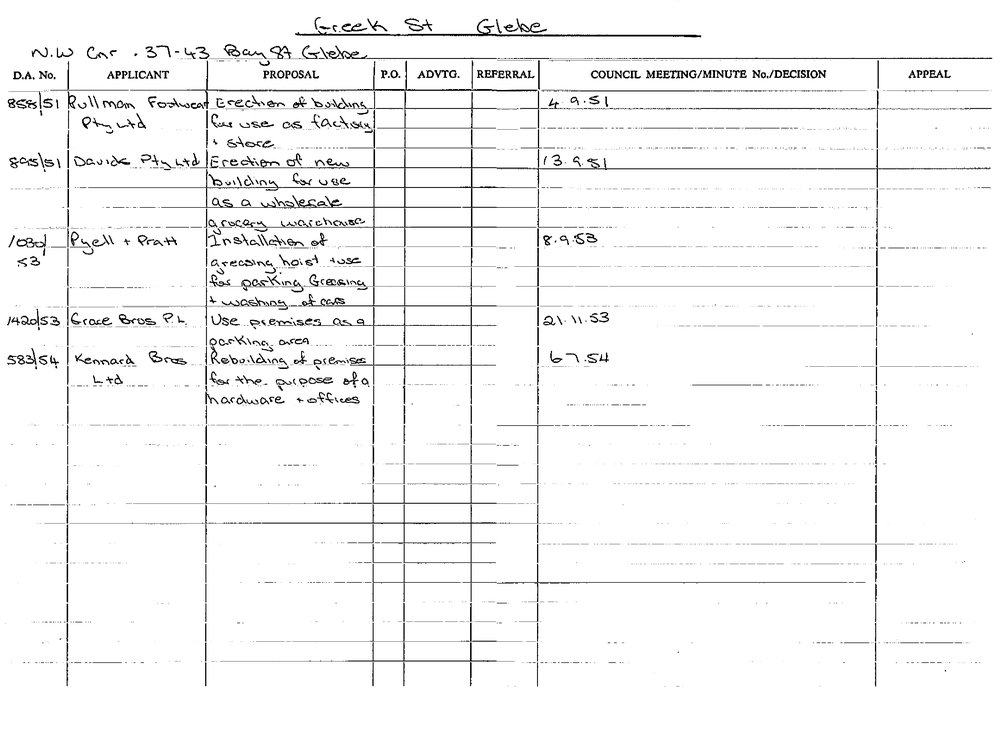 Greek St Glebe
N.W Cnr . 37-43 Bay St Glebe
D.A. No. APPLICANT PROPOSAL P.O. ADVTG. REFERRAL COUNCIL MEETING/MINUTE No./DECISION APPEAL
858/51 Pullman Footwear Erection of building 4.9.51
Pty Ltd for use as factory
+ store
895/51 Davids Pty Ltd Erection of new 13.9.51
building for use
as a wholesale
grocery warehouse
1030/ Pyell + Pratt Installation of 8.9.53
53 greasing hoist + use
for parking Greasing
+ washing of cars
1420/53 Grace Bros P.L. Use premises as a 21.11.53
parking area
583/54 Kennard Bros Rebuilding of premises 6 7.54
Ltd for the purpose of a
hardware + offices